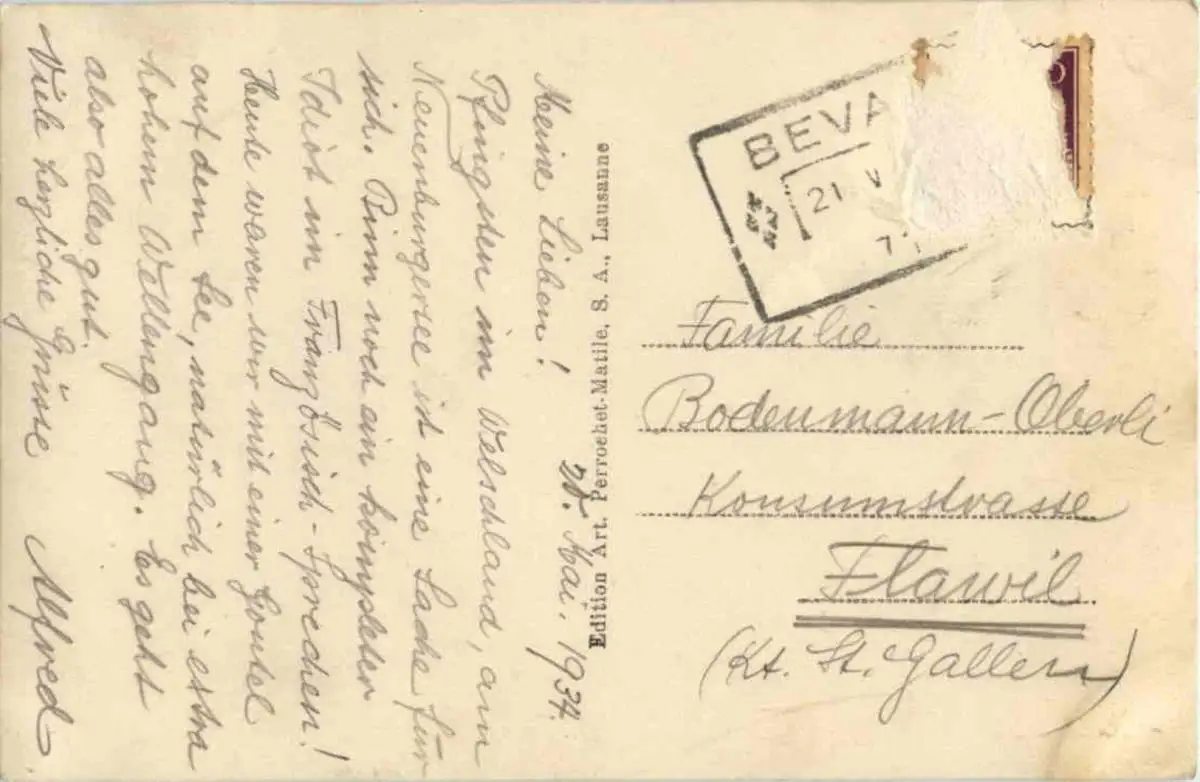 Meine Lieben! 20. Mai. 1934.
Pfingsten im Welschland, am
Neuenburgersee ist eine Sache für
sich. Binn noch ein kömpleter
Idiot im Französisch-Sprechen!
Heute waren wir mit einer Gontel
auf dem See, natürlich bei extra
hohem Wellengang. Es geht
also alles gut.
Viele herzliche Grüsse Alfred.
Edition Art. Perrochet-Matile, S. A., Lausanne
BEVA
21 V
Familie
Bodenmann-Oberli
Konsumstrasse
Flawil
(Kt. St. Gallen)